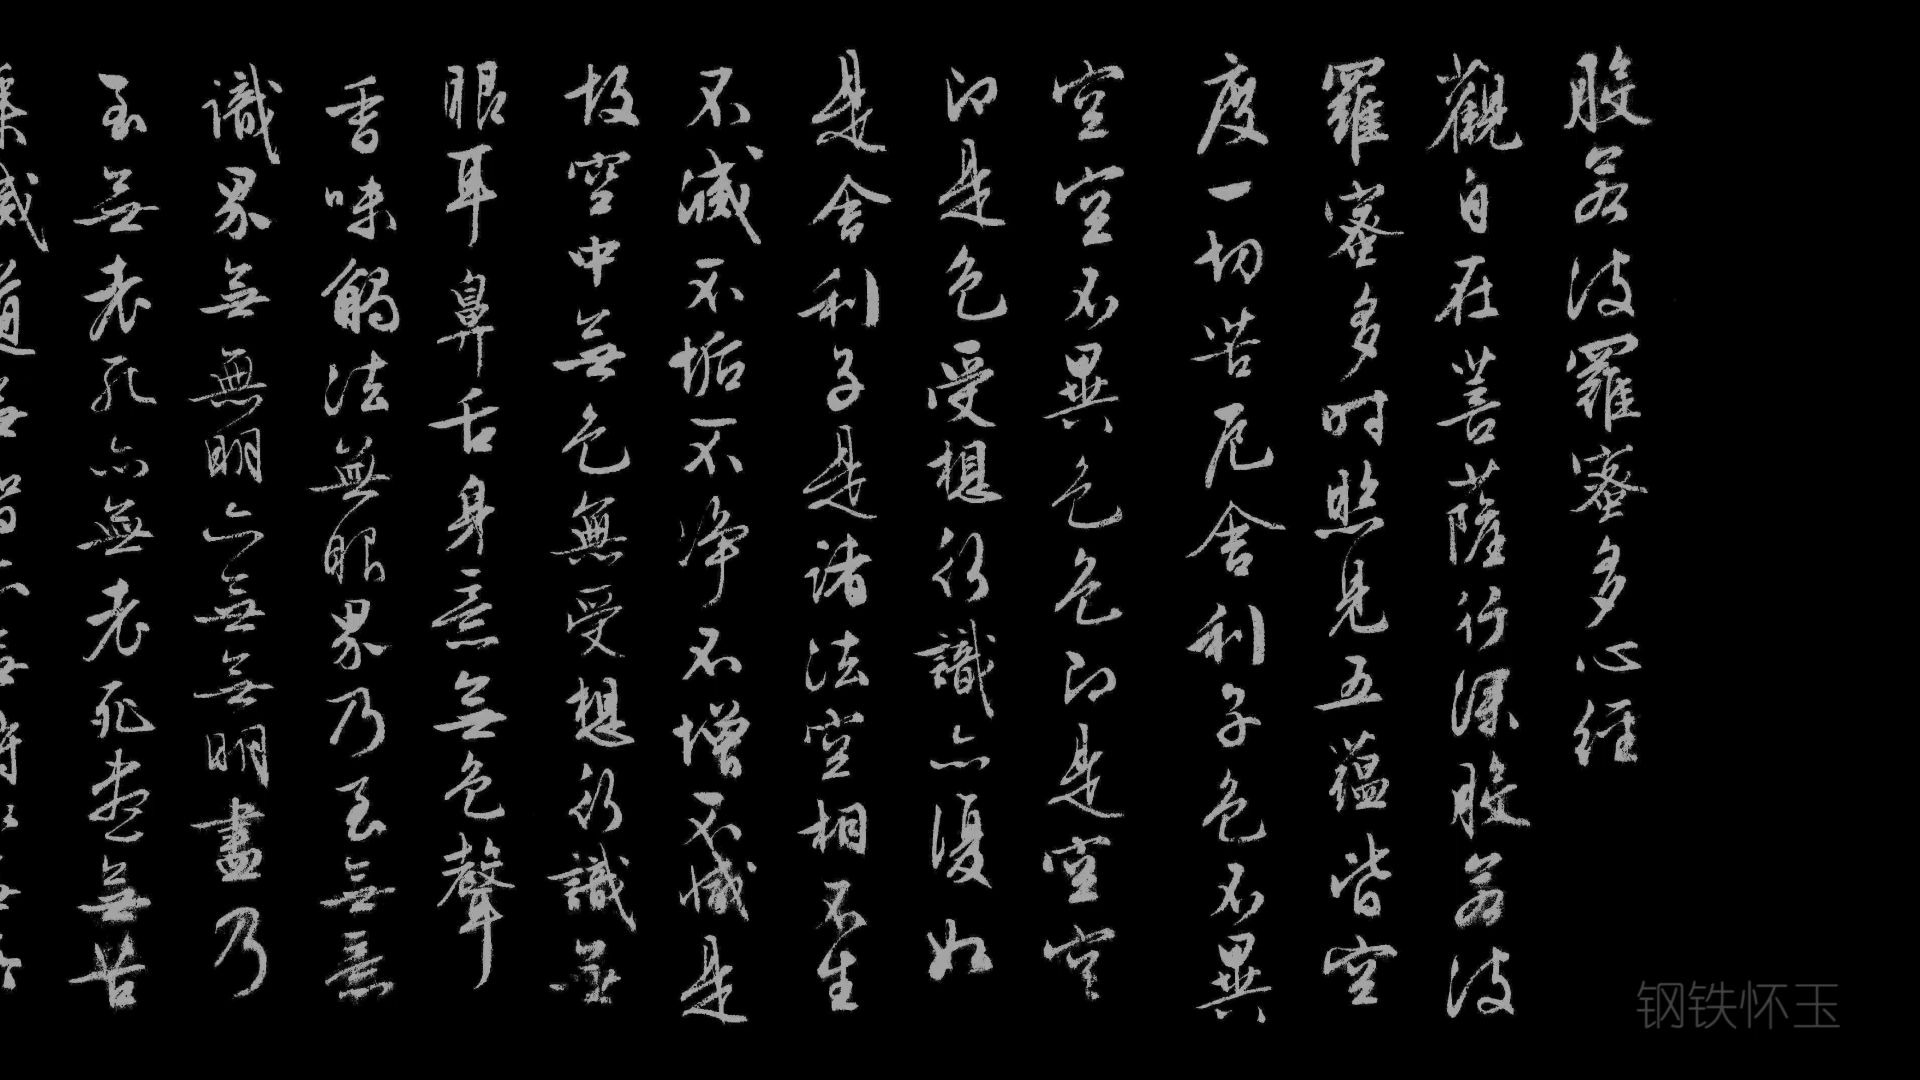 般若波羅蜜多心經
觀自在菩薩行深般若波
羅蜜多時照見五蘊皆空
度一切苦厄舍利子色不異
空空不異色色即是空空
即是色受想行識亦復如
是舍利子是諸法空相不生
不滅不垢不净不增不減是
故空中無色無受想行識無
眼耳鼻舌身意無色聲
香味觸法無眼界乃至無意
識界無無明亦無無明盡乃
至無老死亦無老死盡無苦
滅道
钢铁怀玉